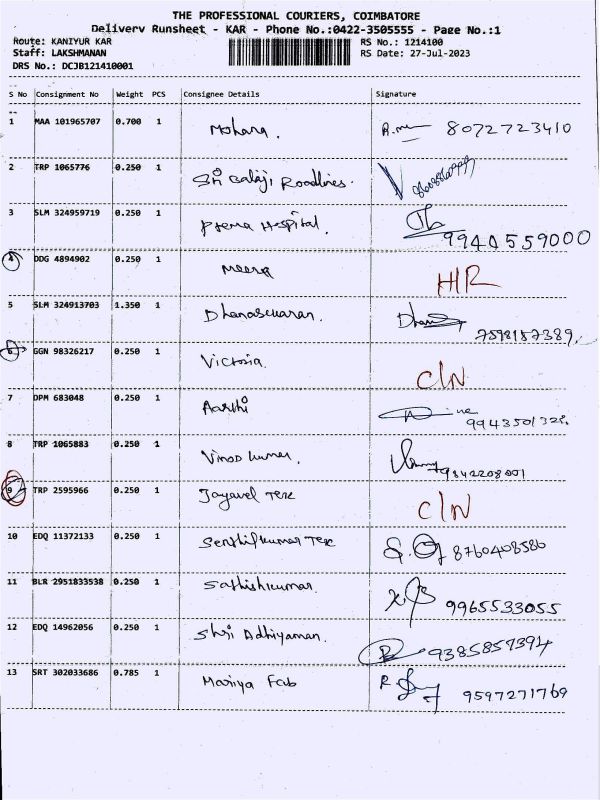 THE PROFESSIONAL COURIERS, COIMBATORE
Delivery Runsheet - KAR - Phone No.:0422-3505555 - Page No.:1
Route: KANIYUR KAR RS No.: 1214100
Staff: LAKSHMANAN RS Date: 27-Jul-2023
DRS No.: DCJB121410001
S No Consignment No Weight PCS Consignee Details Signature
1 MAA 101965707 0.700 1 Mohana. 8072723410
2 TRP 1065776 0.250 1 Sri Balaji Roadlines.
3 SLM 324959719 0.250 1 Prema Hospital. 9940559000
4 DDG 4894902 0.250 1 Meera H/R
5 SLM 324913703 1.350 1 Dhanaswaran. 7598157389.
6 GGN 98326217 0.250 1 Victoria. C/N
7 DPM 683048 0.250 1 Aarthi 9943501328.
8 TRP 1065883 0.250 1 Vinod kumar. 9842208001
9 TRP 2595966 0.250 1 Jayavel Tex C/N
10 EDQ 11372133 0.250 1 Senthilkumar Tex 8760408580
11 BLR 2951833538 0.250 1 Sathishkumar. 9965533055
12 EDQ 14962056 0.250 1 Shri Adhiyaman. 9385857394
13 SRT 302033686 0.785 1 Mariya Fab 9597271769